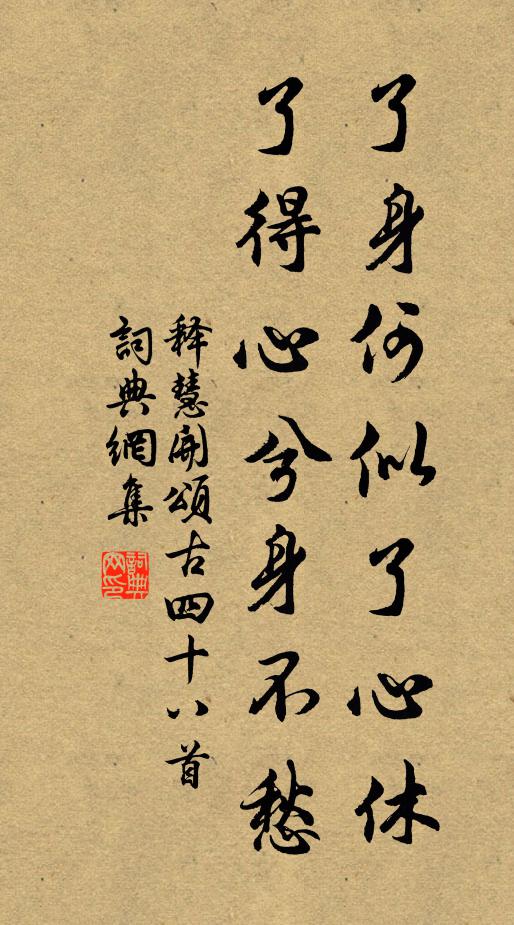 了身何似了心休
了得心兮身不愁
释慧開頌古四十八首
詞典網集
詞典網印